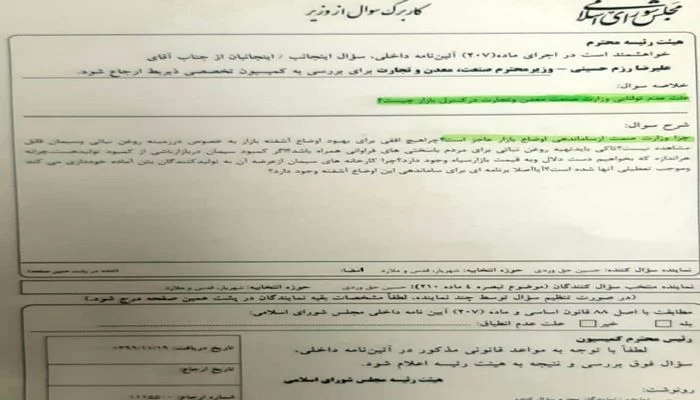 مجلس شورای اسلامی
کاربرگ سوال از وزیر
هیئت رئیسه محترم
خواهشمند است در اجرای ماده(۲۰۷) آئین‌نامه داخلی، سؤال اینجانب / اینجانبان از جناب آقای
علیرضا رزم حسینی – وزیرمحترم صنعت، معدن و تجارت برای بررسی به کمیسیون تخصصی ذیربط ارجاع شود.
خلاصه سوال:
علت عدم توانایی وزارت صنعت معدن وتجارت درکنترل بازار چیست؟
شرح سوال:
چرا وزارت صمت ازساماندهی اوضاع بازار عاجز است؟چراهیچ افقی برای بهبود اوضاع آشفته بازار به خصوص درزمینه روغن نباتی وسیمان قابل
مشاهده نیست؟تاکی بایدتهیه روغن نباتی برای مردم باسختی های فراوانی همراه باشد؟اگر کمبود سیمان دربازارناشی از کمبود تولیدهست،چرابه
هراندازه که بخواهیم دست دلال وبه قیمت بازارسیاه وجود دارد؟چرا کارخانه های سیمان ازعرضه آن به تولیدکنندگان بتن آماده خودداری می کند
وموجب تعطیلی آنها شده است؟آیااصلا برنامه ای برای ساماندهی این اوضاع آشفته وجود دارد؟
نماینده سؤال کننده: حسین حق وردی حوزه انتخابیه: شهریار، قدس و ملارد امضا: ادامه در پشت همین صفحه
نماینده منتخب سؤال کنندگان (موضوع تبصره ۴ ماده ۲۱۰): حسین حق وردی حوزه انتخابیه: شهریار، قدس و ملارد
(در صورت تنظیم سؤال توسط چند نماینده، لطفاً مشخصات بقیه نمایندگان در پشت همین صفحه درج شود.)
مطابقت با اصل ۸۸ قانون اساسی و ماده (۲۰۷) آیین نامه داخلی مجلس شورای اسلامی:
بله خیر علت عدم انطباق:
رئیس محترم کمیسیون
لطفاً با توجه به مواعد قانونی مذکور در آئین‌نامه داخلی،
سؤال فوق بررسی و نتیجه به هیئت رئیسه اعلام شود.
هیئت رئیسه مجلس شورای اسلامی
رونوشت:
تاریخ دریافت: ۱۳۹۹/۱۱/۱۹
تاریخ ارجاع:
شماره ارجاع: ۱۱۱۵۵۰۰